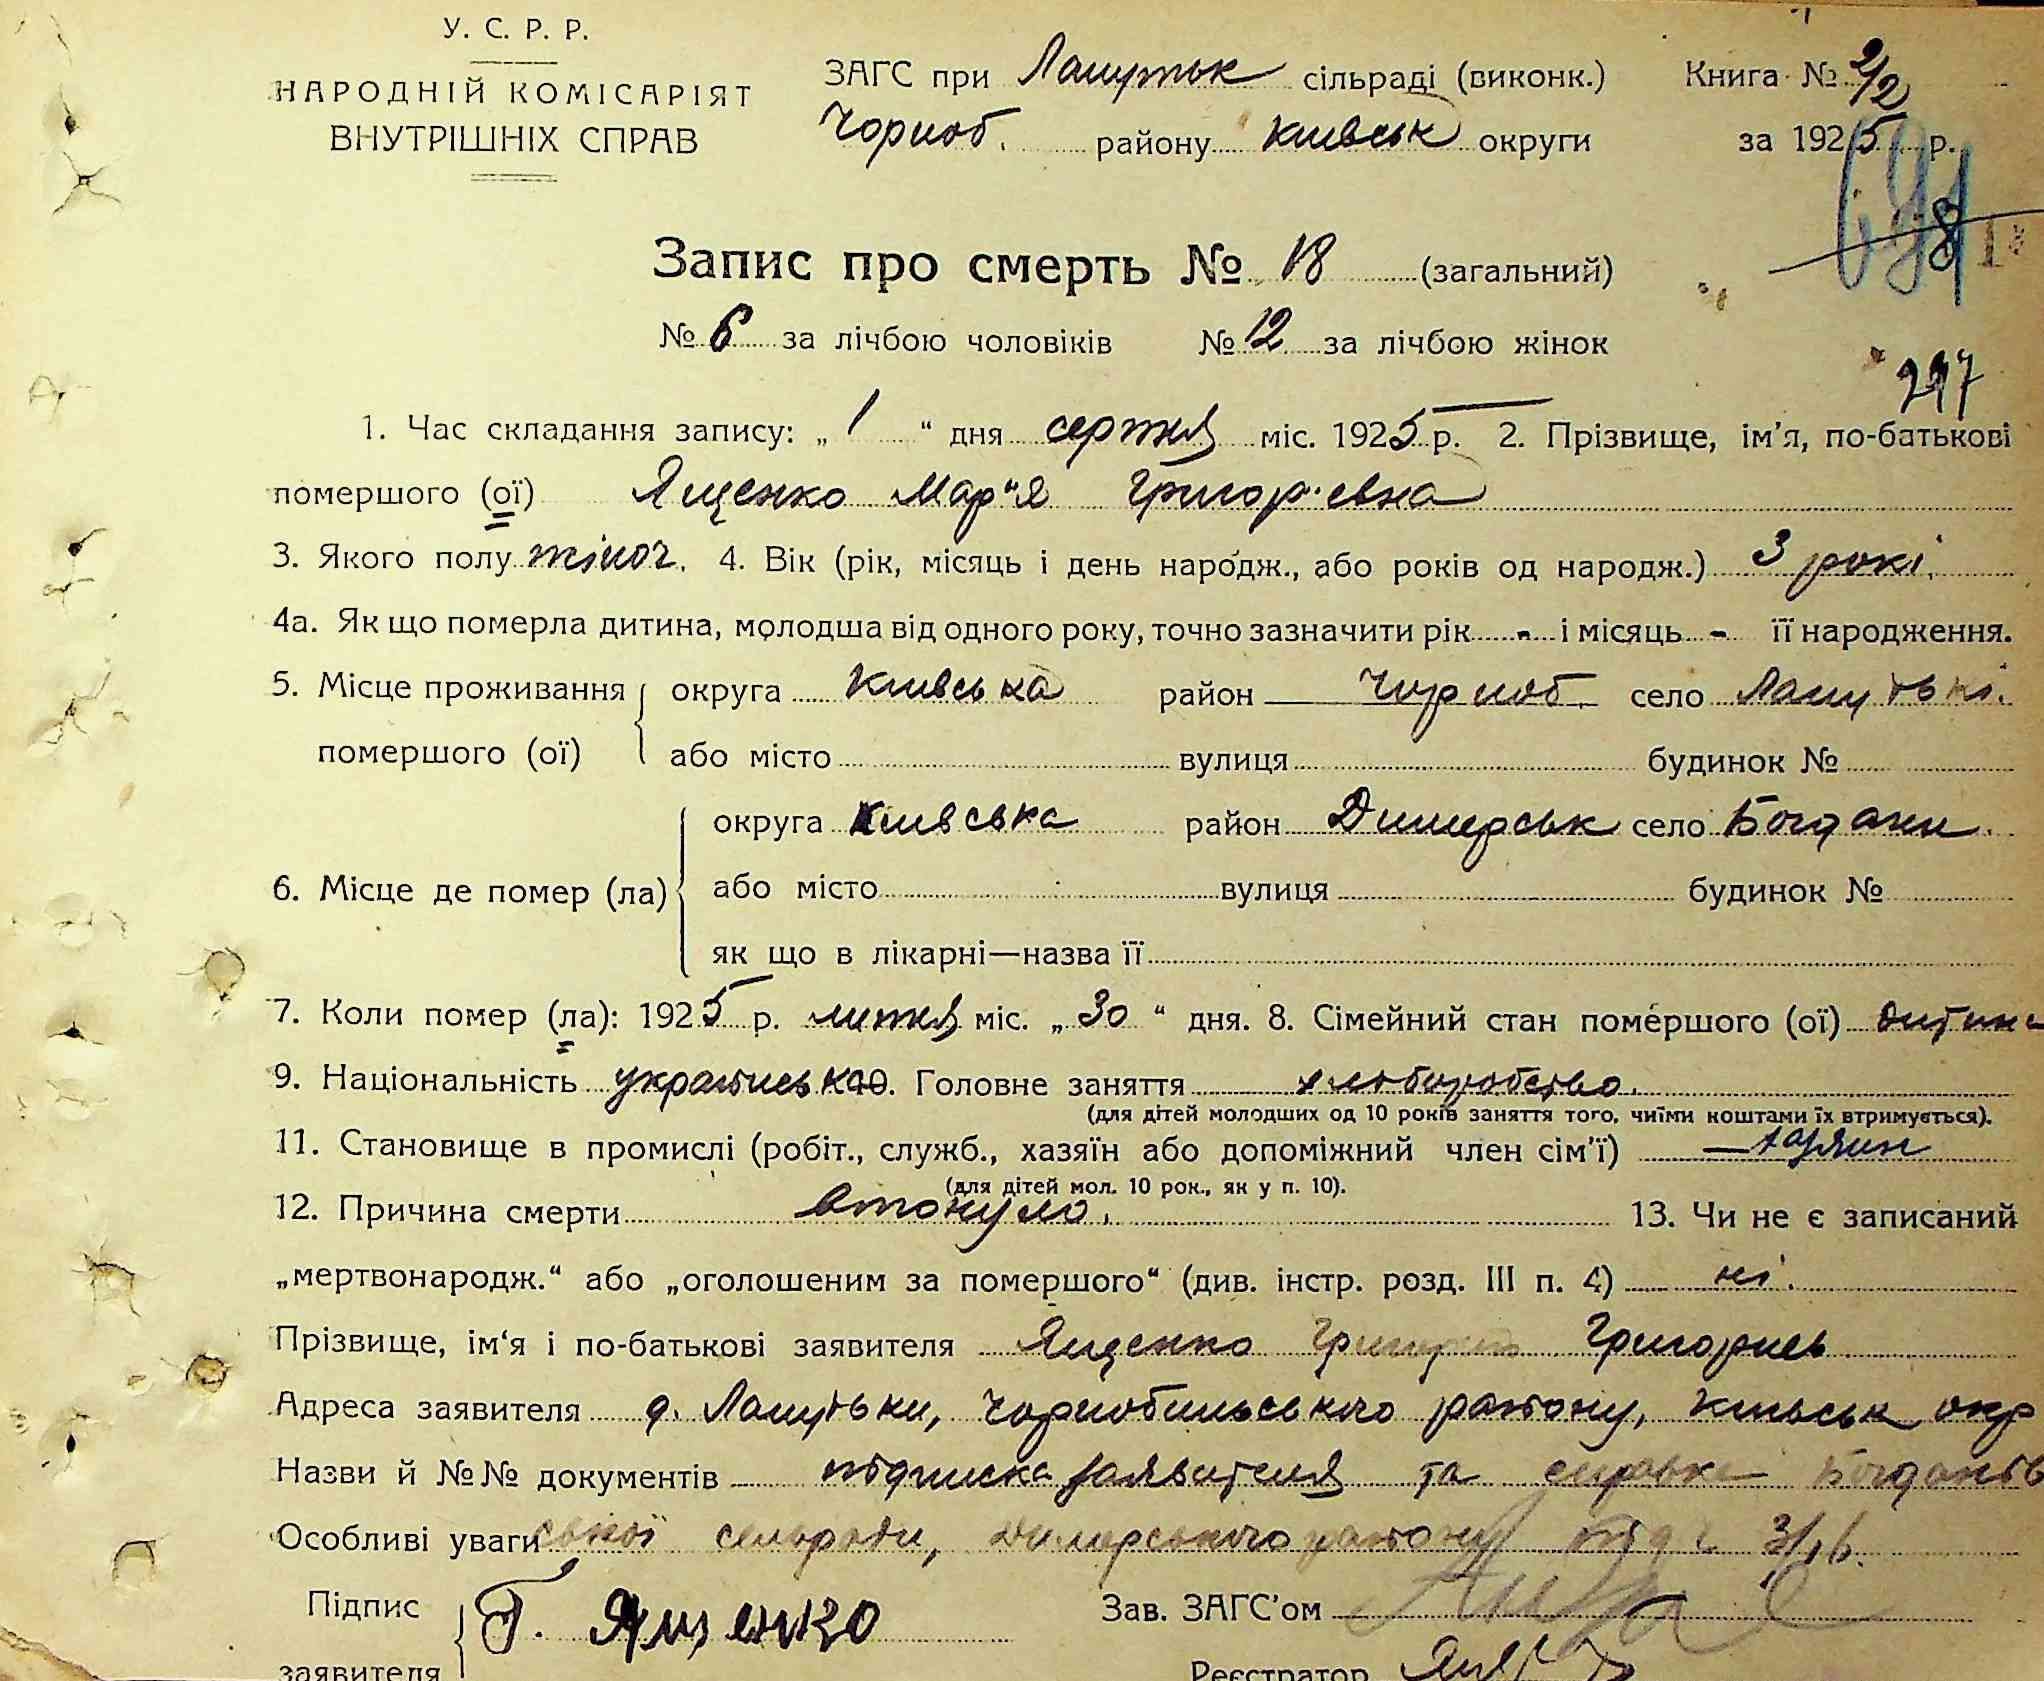 У. С. Р. Р.
НАРОДНІЙ КОМІСАРІЯТ
ВНУТРІШНІХ СПРАВ
ЗАГС при Лапутьк сільраді (виконк.)
Чорноб. району київськ округи
Книга № 2/2
за 1925 р.
Запис про смерть № 18 (загальний)
№ 6 за лічбою чоловіків № 12 за лічбою жінок
217
1. Час складання запису: „ 1 “ дня серпня міс. 1925 р. 2. Прізвище, ім’я, по-батькові
помершого (ої) Ященко Мар"я Григор·евна
3. Якого полу жіноч. 4. Вік (рік, місяць і день народж., або років од народж.) 3 рокі.
4а. Як що померла дитина, молодша від одного року, точно зазначити рік - і місяць - її народження.
5. Місце проживання помершого (ої) округа Київська район Чорноб. село Лапутькі.
або місто вулиця будинок №
6. Місце де помер (ла) округа Київська район Димерськ село Богдани.
або місто вулиця будинок №
як що в лікарні—назва її
7. Коли помер (ла): 1925 р. липня міс. „ 30 “ дня. 8. Сімейний стан помершого (ої) дитина
9. Національність українська 10. Головне заняття хліборобство.
(для дітей молодших од 10 років заняття того, чиїми коштами їх втримується).
11. Становище в промислі (робіт., служб., хазяїн або допоміжний член сім’ї) — хазяин
(для дітей мол. 10 рок., як у п. 10).
12. Причина смерти втонуло. 13. Чи не є записаний
„мертвонародж.“ або „оголошеним за помершого“ (див. інстр. розд. III п. 4) ні.
Прізвище, ім‘я і по-батькові заявителя Ященко Григорій Григориев
Адреса заявителя д. Лапутьки, Чорнобильського району, Київськ окр
Назви й №№ документів підписка заявителя та справка Богданів
Особливі уваги ської сельради, Димерського району від
Підпис заявителя Г. Ященко
Зав. ЗАГС’ом
Реєстратор